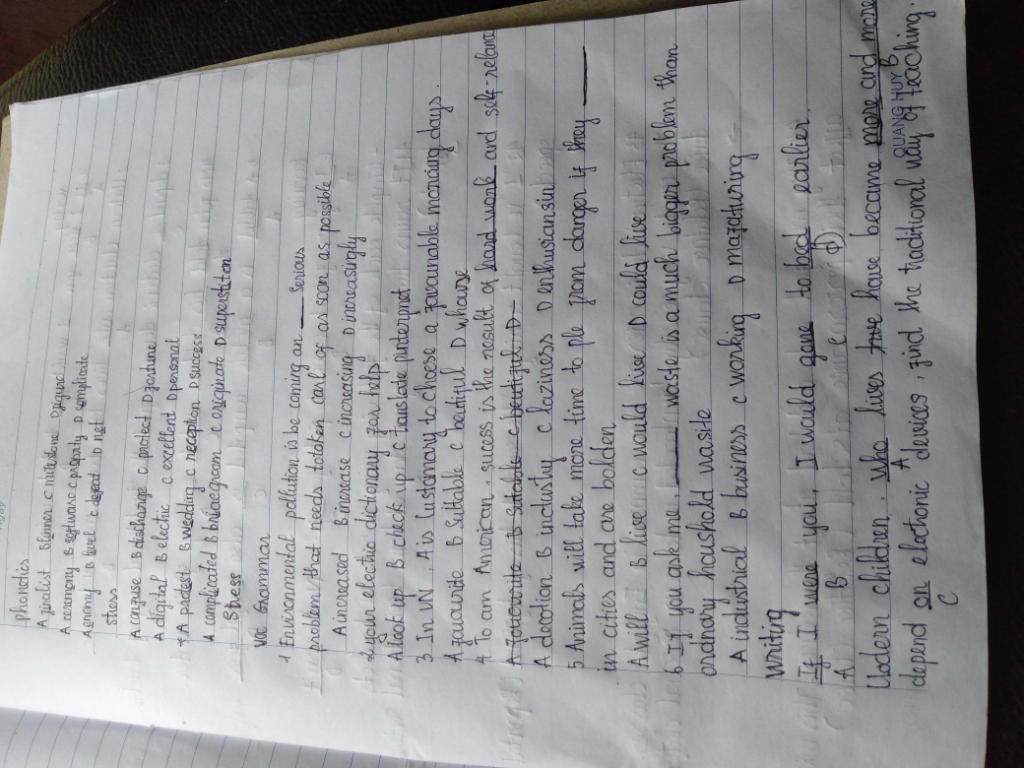 Phonetics
A finalist B liner C
A ceremony B software C properly D
A enemy B level C D net
stress
A confuse B dishange C protect D fortune
A digital B electric C excellent D personal
A protect B wedding C reception D success
A complicated B bridegroom C originate D superstition
Stress
Voc Grammar
1 Environmental pollution is be coming an ___ Serious
problem that needs to taken carl of as soon as possible
A increased B increase C increasing D increasingly
2 your electric dictionary for help
A look up B check up C translate D internet
3 In VN, A is Custamary to choose a favourable moncing days.
A favourite B Suitable C beatiful D whouse
4 To am American, success is the result of hard work and self-relance
A favourite B C beatiful D
A devotion B industry C laziness D enhusiansim
5 Animals will take more time to fle from danger if they ___
in cities and are bolden
A will B live C would live D could live
6 If you ask me, ___ waste is a much bigger problem than
ordenary houshold waste
A industrial B business C working D mafaturing
Writing
If I were you, I would gone to bed earlier.
A B C D
Modern children, who lives have become more and more
QUANG HUY B
depend on electionic devices, find the traditional way of teaching.
C A